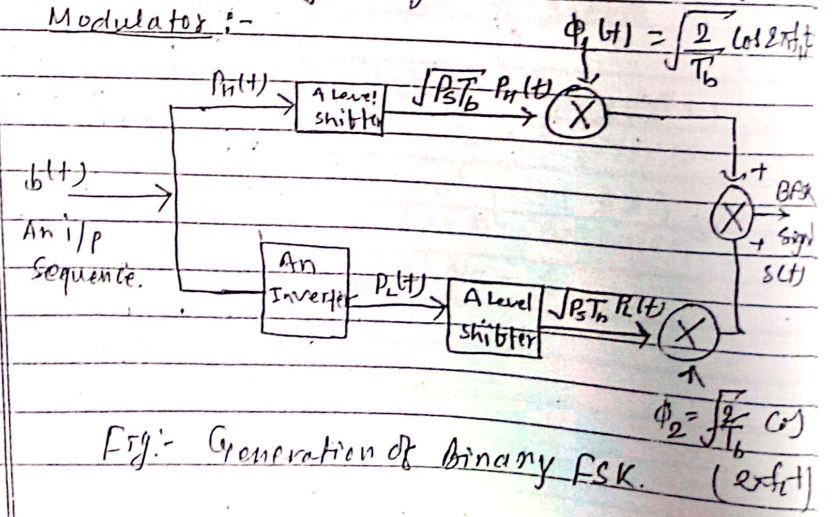 Modulator :-
ϕ₁(t) = √2/T_b Cos2πf_Ht
P_H(t)
A Level
Shifter
√P_sT_b P_H(t)
X
b(t)
An i/p
Sequence.
+
X
+
BFSK
Signal
S(t)
An
Inverter
P_L(t)
A Level
Shifter
√P_sT_b P_L(t)
X
ϕ₂ = √2/T_b Cos
(2πf_Lt)
Fig:- Generation of Binary FSK.